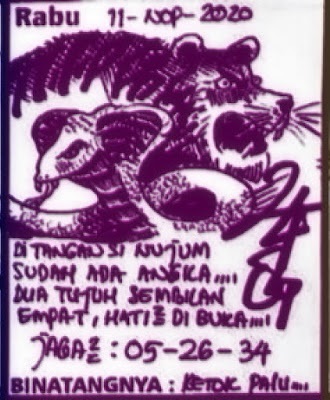 Rabu 11-NOP-2020
DITANGAN SI NUJUM
SUDAH ADA ANGKA....
DUA TUJUH SEMBILAN
EMPAT, HATI2 DI BUKA....
JAGA2 : 05-26-34
BINATANGNYA : KETOK PALU....